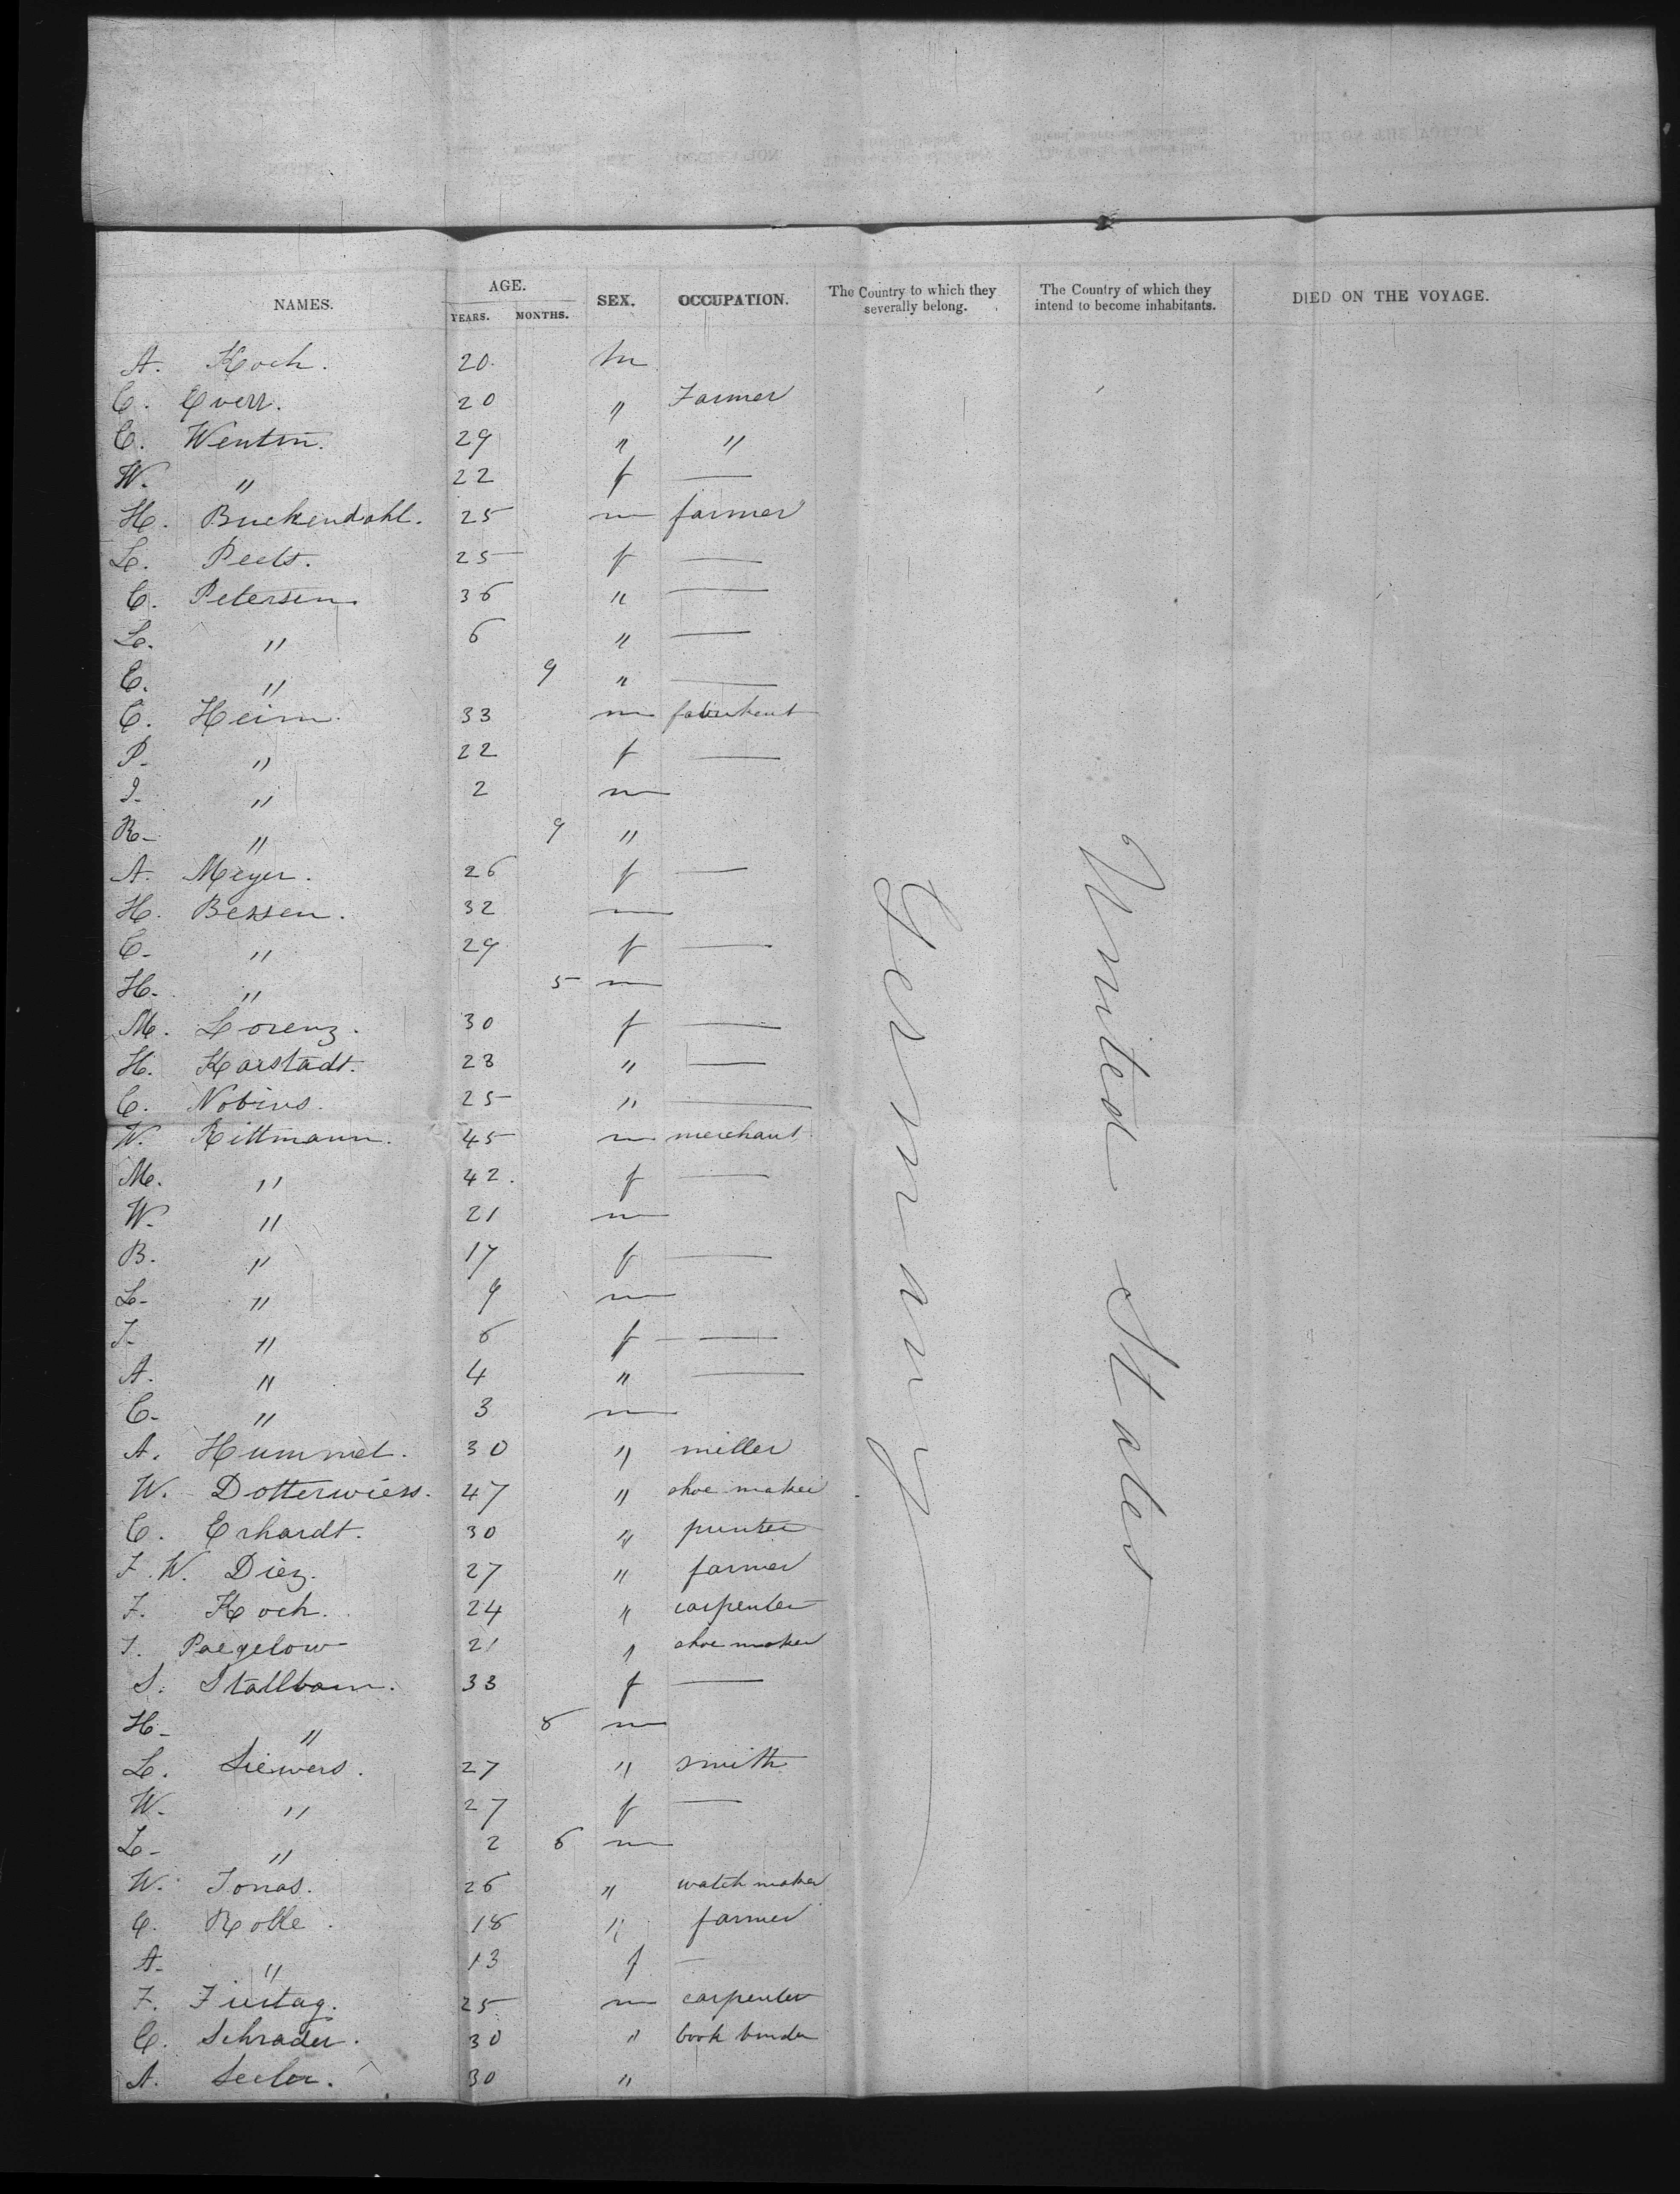 NAMES. AGE. YEARS. MONTHS. SEX. OCCUPATION. The Country to which they severally belong. The Country of which they intend to become inhabitants. DIED ON THE VOYAGE.
A. Koch. 20. m
C. Evers. 20 " Farmer
C. Wentin. 29 " "
W. " 22 f —
H. Buckendahl. 25 m farmer
L. Peets. 25 f —
C. Petersen 36 " —
L. " 6 " —
E. " 9 " —
C. Heim. 33 m fabrikant
P. " 22 f —
J. " 2 m
R. " 9 "
A. Meyer. 26 f —
H. Bessen. 32 m
C. " 29 f —
H. " 5 m
M. Lorenz. 30 f —
H. Karstadt. 23 " —
C. Nobius. 25 " —
W. Rittmann. 45 m merchant
M. " 42. f —
W. " 21 m
B. " 17 f —
L. " 9 m
" 6 f —
A. " 4 " —
C. " 3 m
A. Hummel. 30 " miller
W. Dotterwiess. 47 " shoe maker
C. Erhardt. 30 " printer
F. W. Diez. 27 " farmer
F. Koch. 24 " carpenter
Paegelow 21 " shoe maker
S. Stallbaum. 33 f —
H. " 8 m
L. Siewers. 27 " smith
W. " 27 f —
L. " 2 6 m
W. Jonas. 26 " watch maker
C. Rolle. 18 " farmer
A. " 13 f —
F. Freitag. 25 m carpenter
C. Schrader. 30 " book binder
A. Seeler. 30 "
Germany
United States